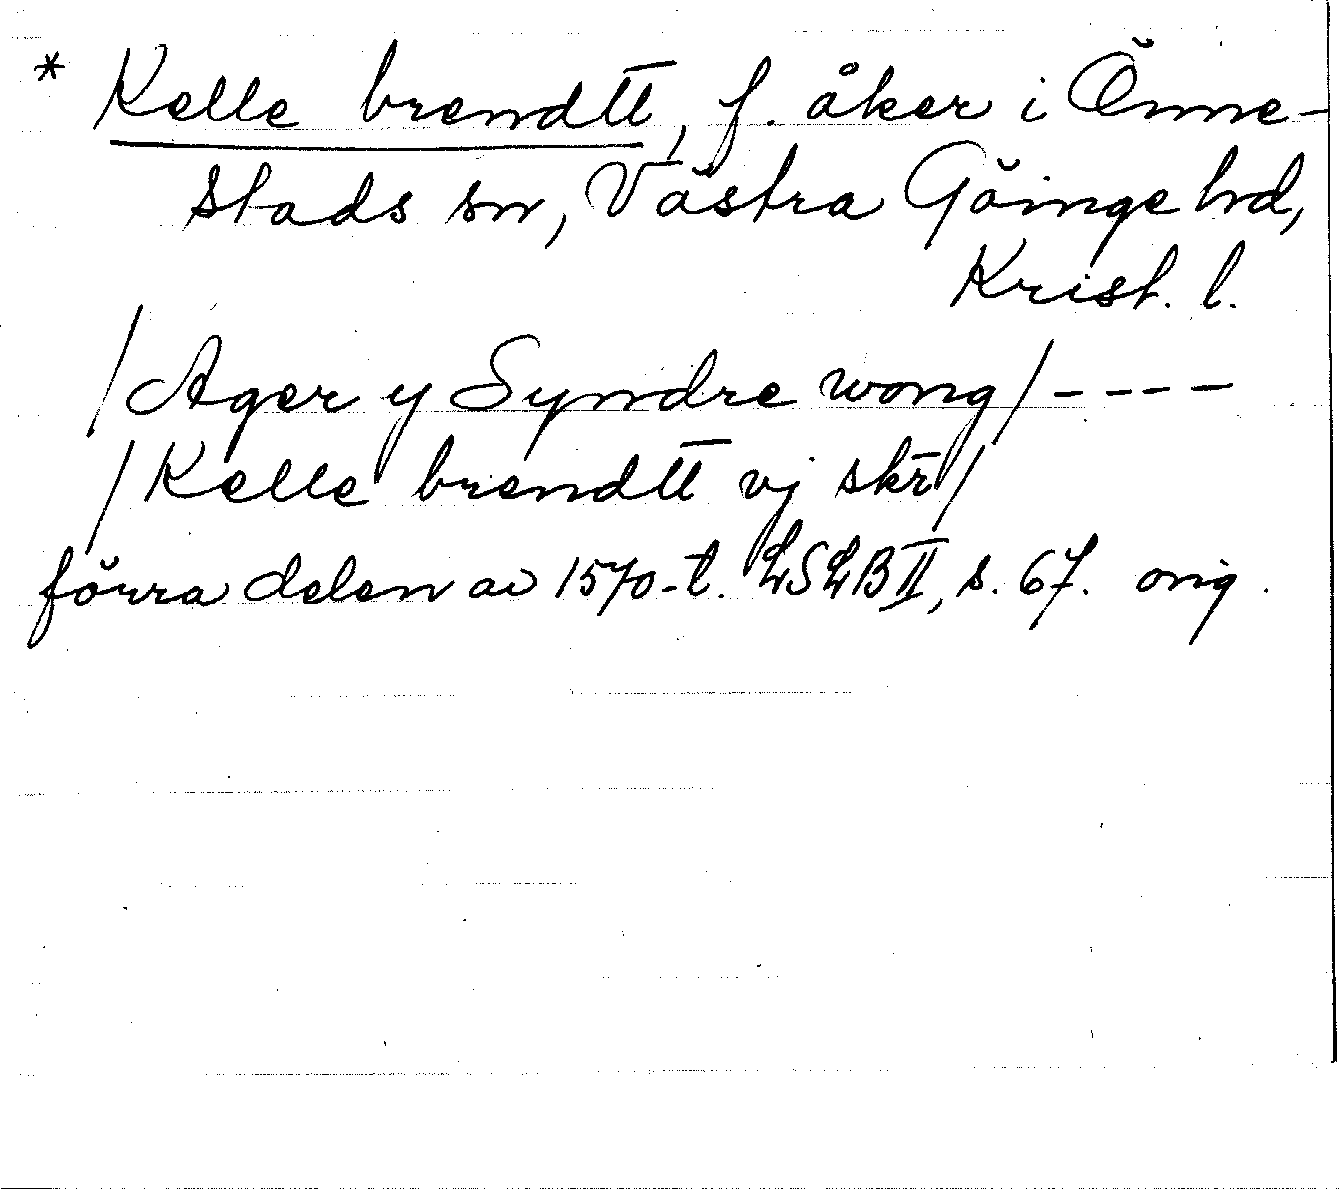 * Kelle brendtt, f. åker i Önne-
stads sn, Västra Göinge hd,
Krist. l.
/Ager y Syndre wong/----
/Kelle brendtt vj skr/
förra delen av 1570-t. LSLB II, s. 67. orig.